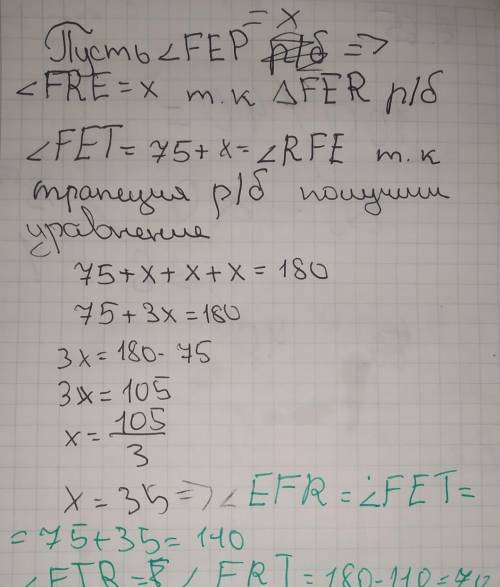 Пусть ∠FEP = x р/б =>
∠FRE = x т.к △FER р/б
∠FET = 75 + x = ∠RFE т.к
трапеция р/б получим
уравнение
75 + x + x + x = 180
75 + 3x = 180
3x = 180 - 75
3x = 105
x = 105/3
x = 35 => ∠EFR = ∠FET =
= 75 + 35 = 110
∠ETR = ∠FRT = 180 - 110 = 70